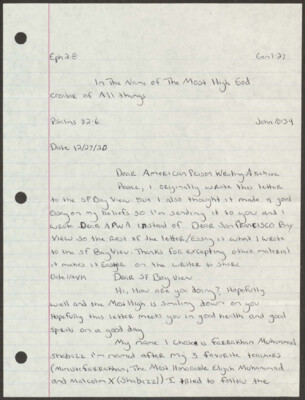 Eph 2:8 Gen 1:27
In The Name of The Most High God
creator of All things
Psalms 82:6 John 10:34
Date 12/27/20
Dear American Prison Writing Archive
Peace, I originally wrote this letter
to the SF Bay View but I also thought it made a good
Essay on my beliefs so I'm sending it to you and I
wrote Dear APWA instead of Dear San Francisco Bay
View so the rest of the letter/Essay is what I wrote
to the SF Bay View Thanks for excepting other material
it makes it easier on the writer to share
Dear SF Bay View
Hi, How are you doing? Hopefully
well and the Most High is smiling down on you
Hopefully this letter meets you in good health and good
spirits on a good day
My name I chose is Farrakhan Muhammad
Shabazz I'm named after my 3 favorite teachers
(Minister Farrakhan, The Most Honorable Elijah Muhammad
and Malcolm X (Shabazz)) I tried to follow the